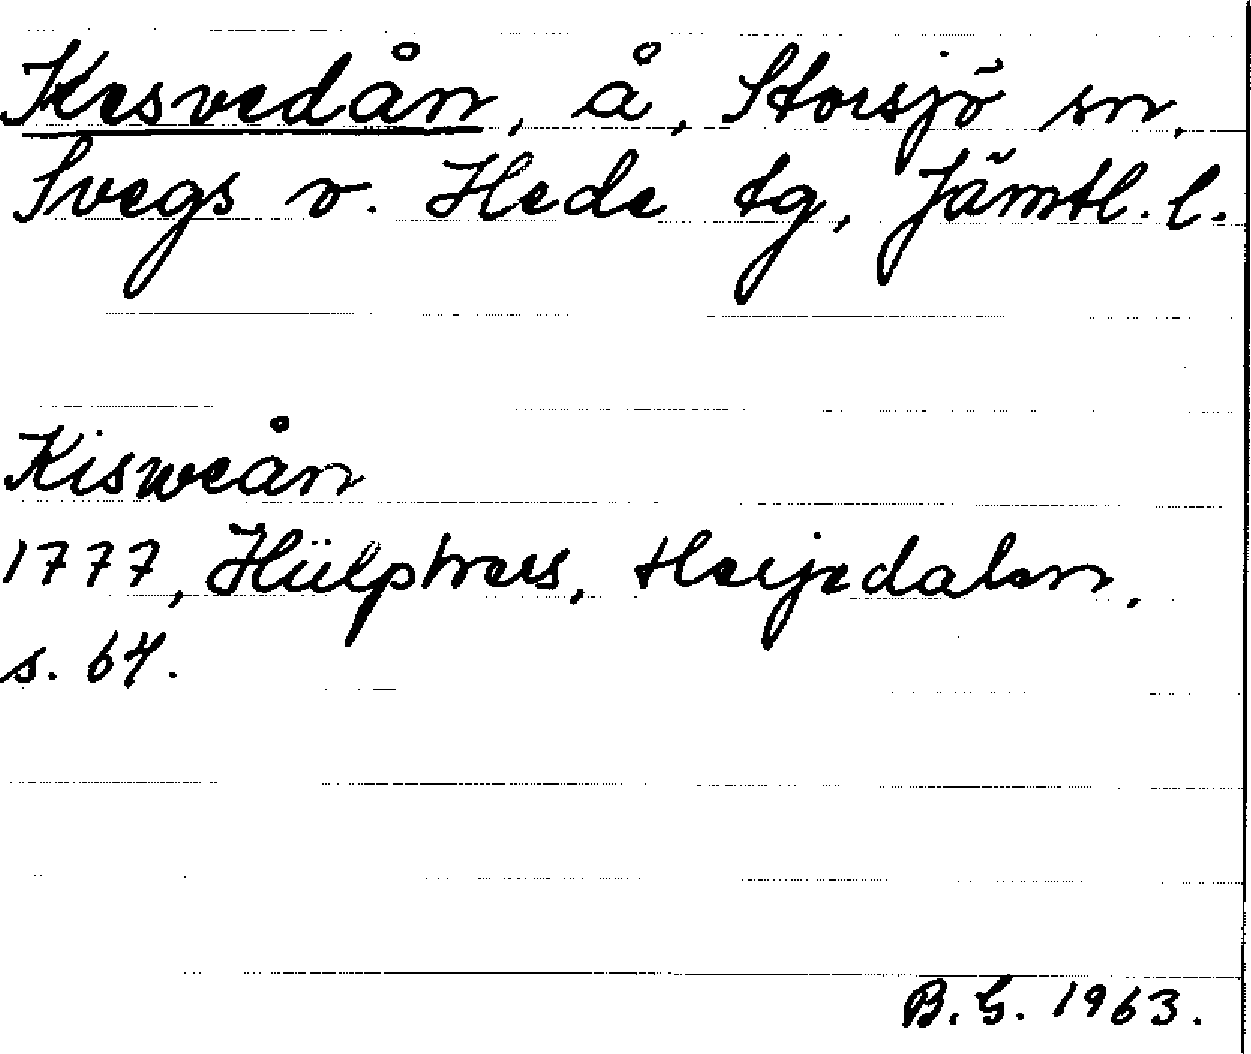 Kesvedån, å, Storsjö sn,
Svegs o. Hede tg, Jämtl. l.
Kisweån
1777, Hülphers, Herjedalen,
s. 64.
B. G. 1963.